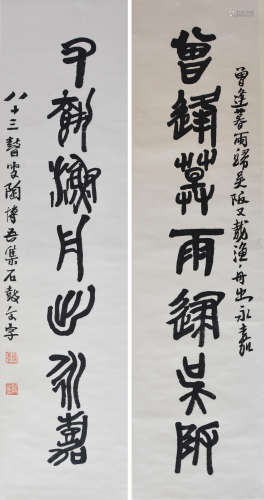 曾逢暮雨歸吳阪又載漁舟出永嘉
曾逢暮雨歸吳阪
又載漁舟出永嘉
八十三瞽叟陶博吾集石鼓全字